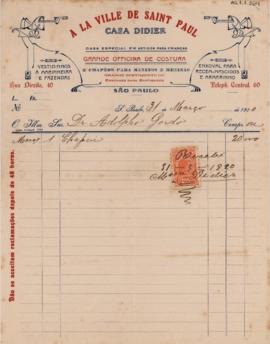 A LA VILLE DE SAINT PAUL
CASA DIDIER
CASA ESPECIAL EM ARTIGOS PARA CRIANÇAS
GRANDE OFFICINA DE COSTURA
E CHAPÉOS PARA MENINOS E MENINAS
GRANDE SORTIMENTO DE
SÃO PAULO
VESTIDINHOS
A MARINHEIRA
E FAZENDAS
ENXOVAL PARA
RECEM-NASCIDOS
E ARMARINHO
Rua Direita, 40
Teleph. Central, 60
S. Paulo, 31 de Março de 1920
O Illm. Snr. Dr Adolpho Gordo Comprou
Março 1 Chapeu 20
Recebi
31 - 3 - 1920
Didier
Não se acceitam reclamações depois de 48 horas.